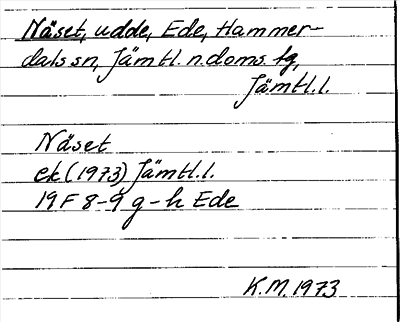 Näset, udde, Ede, Hammer-
dals sn, Jämtl. n. doms. fg,
Jämtl. l.
Näset
ek (1973) Jämtl. l.
19 F 8-9 g-h Ede
K.M. 1973